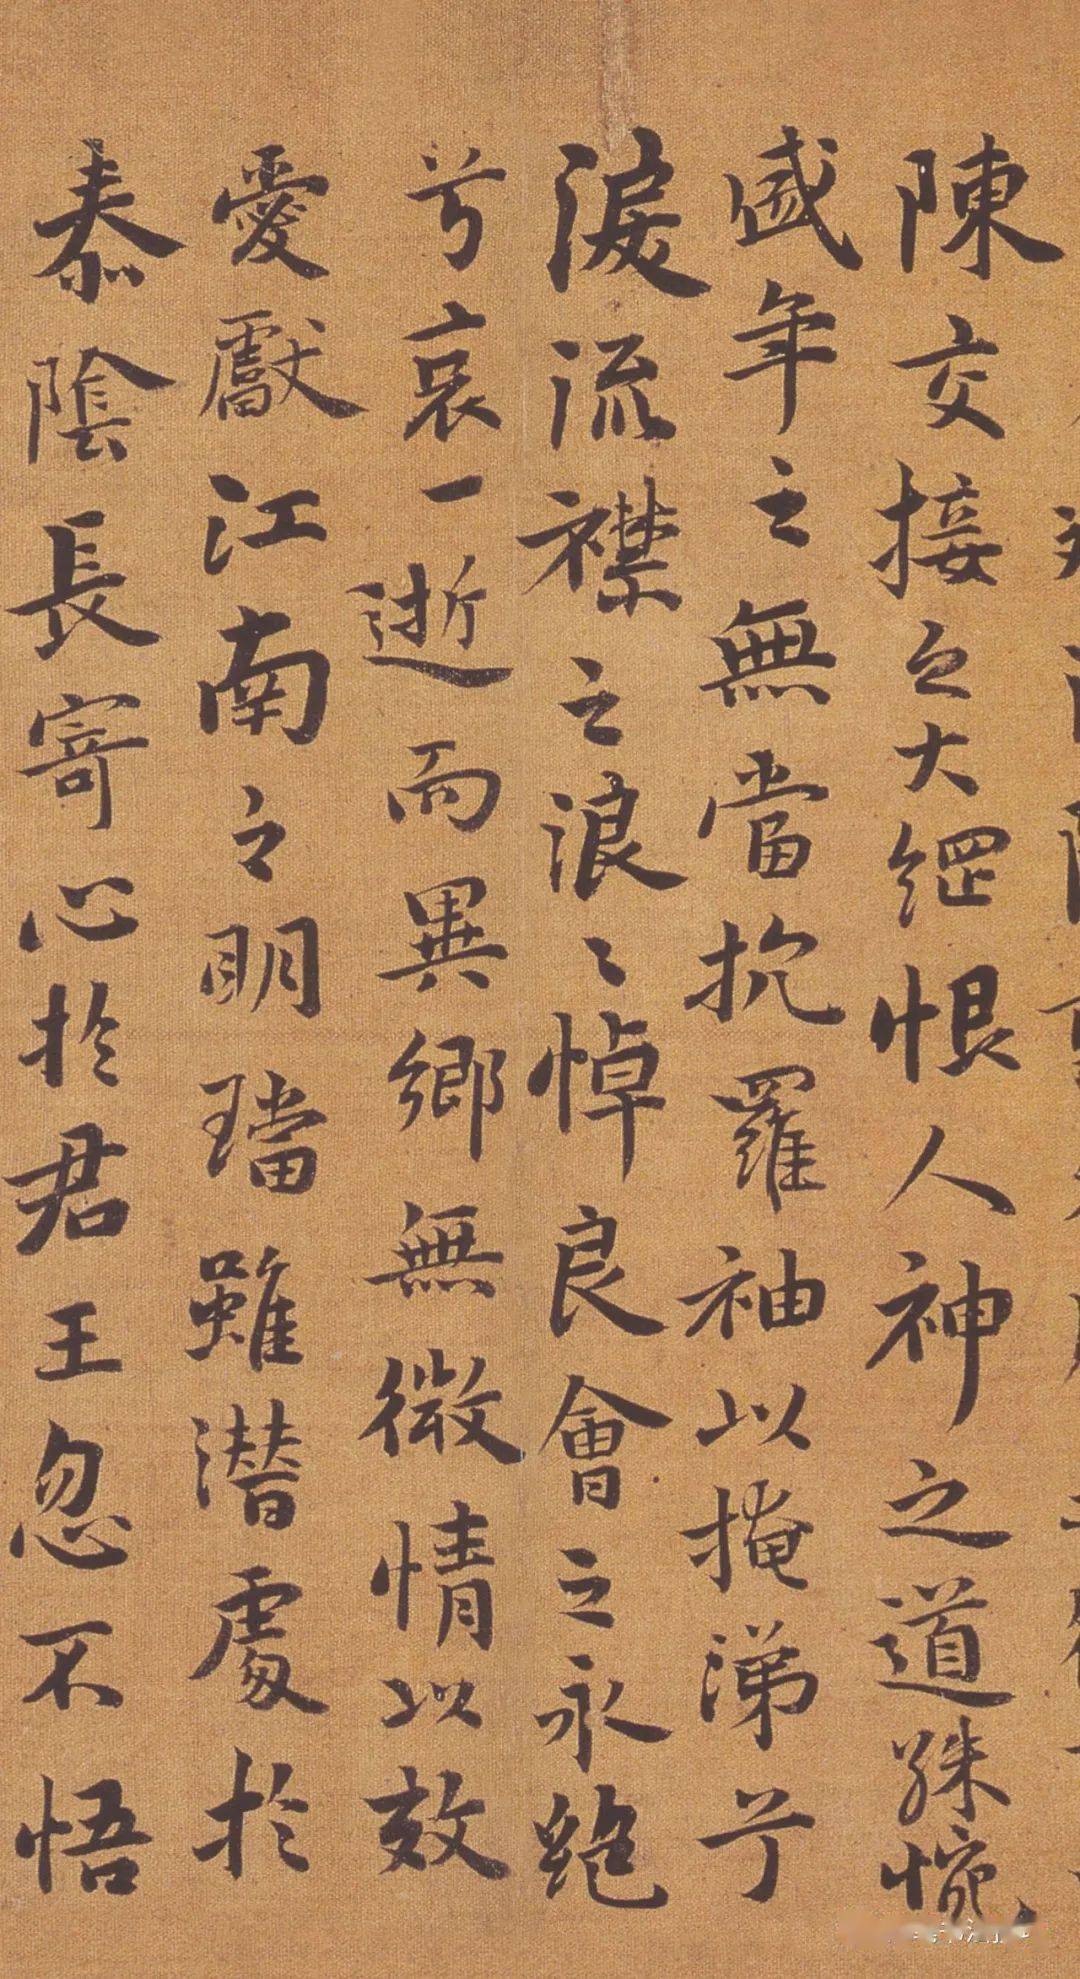 陳交接之大綱恨人神之道殊怨
盛年之無當抗羅袖以掩涕兮
淚流襟之浪〻悼良會之永絕
兮哀一逝而異鄉無微情以效
愛獻江南之明璫雖潛處於
泰陰長寄心於君王忽不悟